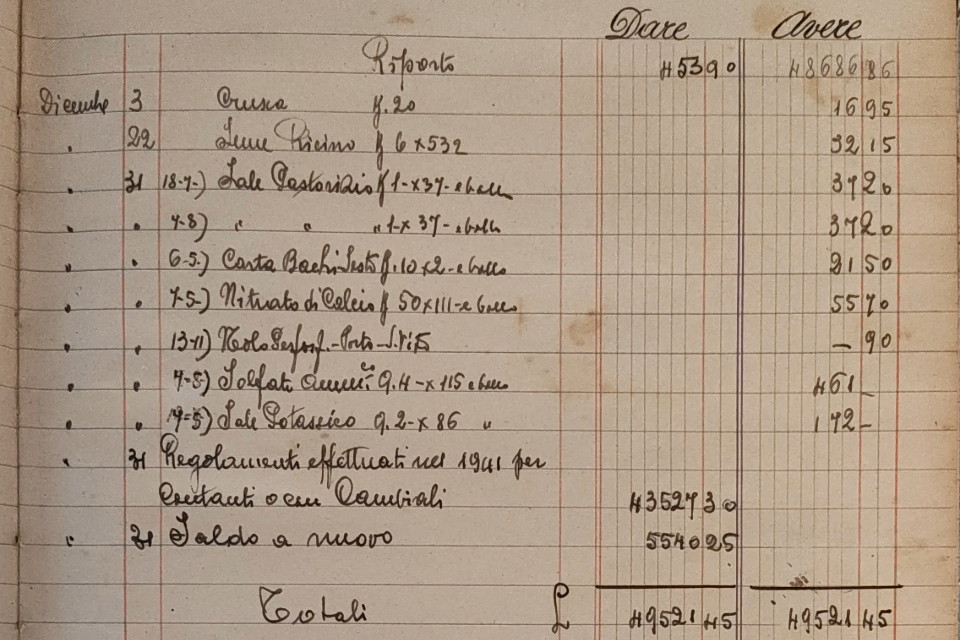 Dare Avere
Riporto 453 90 48686 86
Dicembre 3 Crusca K. 20 16 95
" 22 Seme Ricino K 6 x 532 32 15
" 31 18-7-) Sale Pastorizio K 1-x 37- e ballo 37 20
" " 7-8) " " " 1-x 37- e ballo 37 20
" " 6-5-) Carta Bachi K. 10 x 2- e ballo 21 50
" " 7-5-) Nitrato di Calcio K 50 x 111- e ballo 55 70
" " 13-11) Nolo Porto - 90
" " 7-5-) Solfato Q. 4- x 115 e ballo 461 -
" " 7-5) Sale Potassico Q. 2- x 86 " 172 -
" 31 Regolamenti effettuati nel 1941 per
Contanti o con Cambiali 43527 30
" 31 Saldo a nuovo 5540 25
Totali £ 49521 45 49521 45